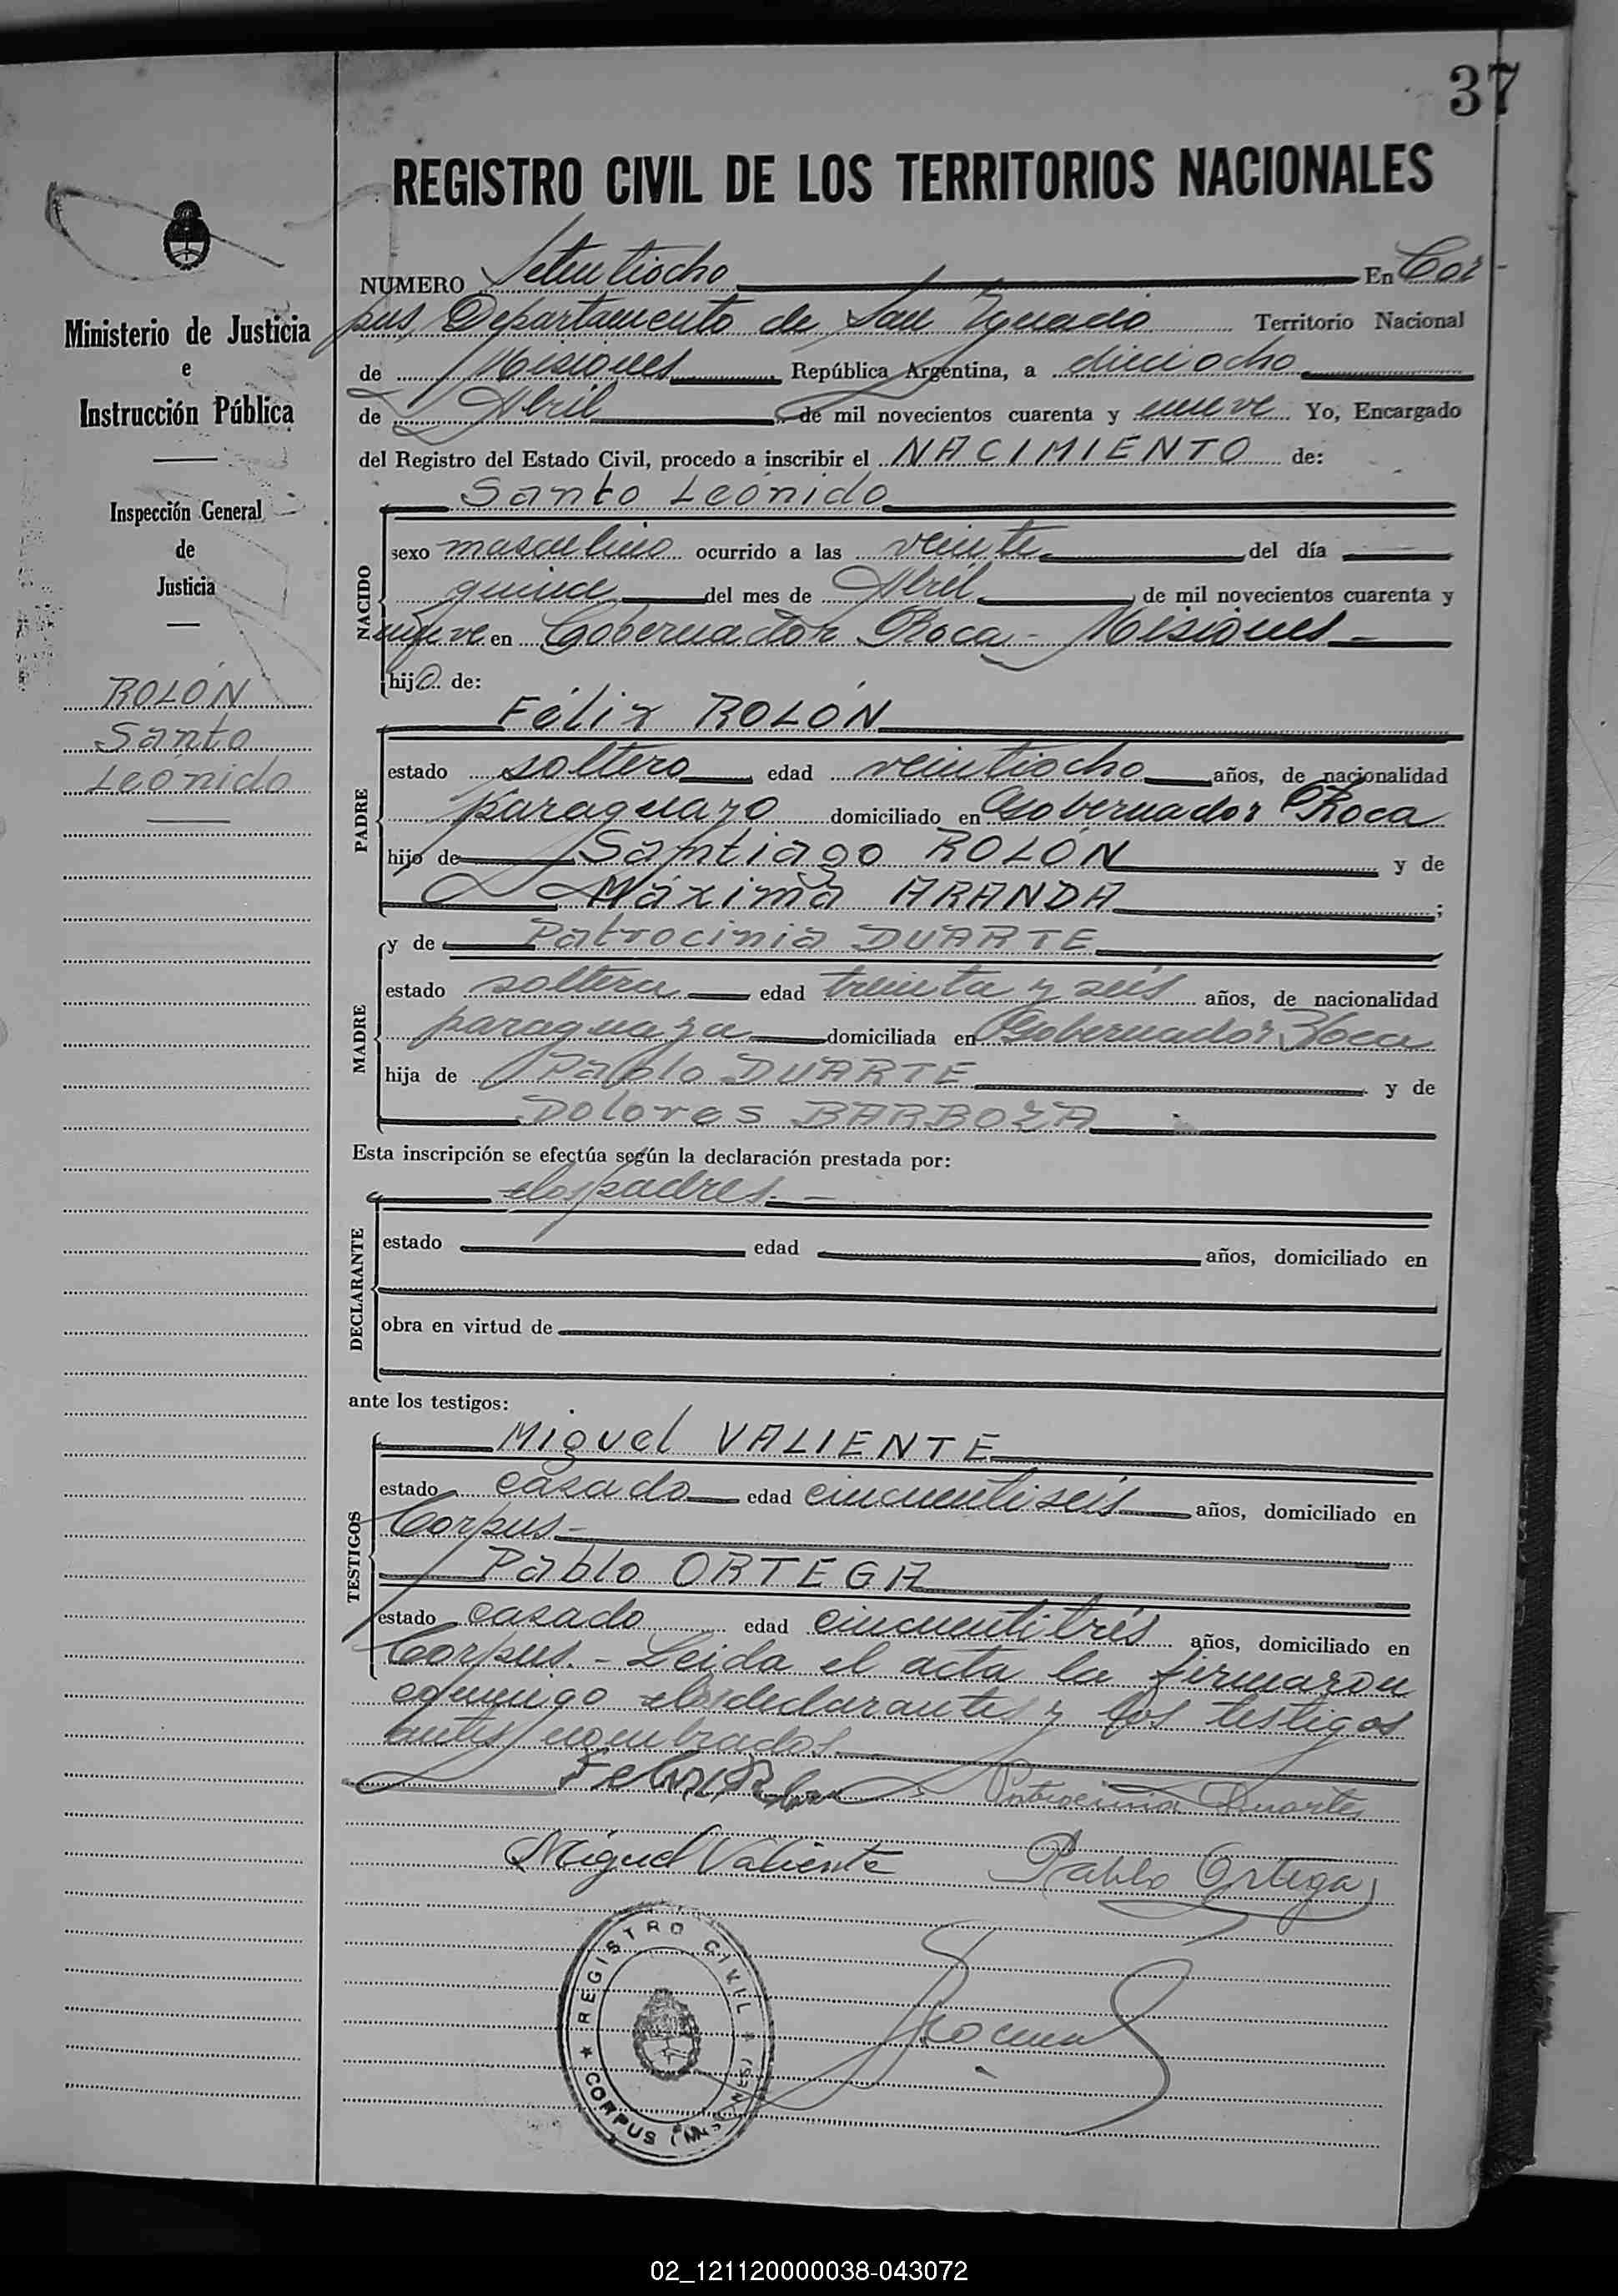 37
REGISTRO CIVIL DE LOS TERRITORIOS NACIONALES
Ministerio de Justicia
e
Instrucción Pública
Inspección General
de
Justicia
ROLÓN
Santo
Leónido
NUMERO Setentiocho En Cor-
pus Departamento de San Ignacio Territorio Nacional
de Misiones República Argentina, a dieciocho
de Abril de mil novecientos cuarenta y nueve Yo, Encargado
del Registro del Estado Civil, procedo a inscribir el NACIMIENTO de:
Santo Leónido
NACIDO
sexo masculino ocurrido a las veinte del día
quince del mes de Abril de mil novecientos cuarenta y
nueve en Gobernador Roca - Misiones -
hijo de:
Félix ROLÓN
PADRE
estado soltero edad veintiocho años, de nacionalidad
paraguayo domiciliado en Gobernador Roca
hijo de Santiago ROLÓN y de
Máxima ARANDA ;
MADRE
y de Patrocinia DUARTE
estado soltera edad treinta y seis años, de nacionalidad
paraguaya domiciliada en Gobernador Roca
hija de Pablo DUARTE y de
Dolores BARBOZA
Esta inscripción se efectúa según la declaración prestada por:
DECLARANTE
los padres. -
estado edad años, domiciliado en
obra en virtud de
ante los testigos:
TESTIGOS
Miguel VALIENTE
estado casado edad cincuentiseis años, domiciliado en
Corpus -
Pablo ORTEGA
estado casado edad cincuentitrés años, domiciliado en
Corpus. - Leída el acta la firmaron
conmigo los declarantes y los testigos
antes nombrados
Patrocinia Duarte
Miguel Valiente Pablo Ortega
REGISTRO CIVIL
CORPUS (MISIONES)
02_121120000038-043072